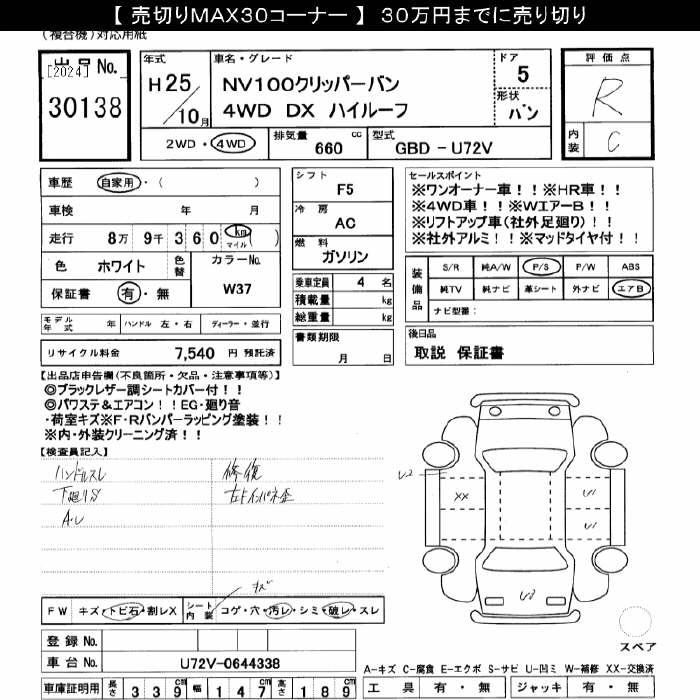 【 売切りMAX30コーナー 】 30万円までに売り切り
(複合機)対応用紙
出品 No.
[2024]
30138
年式
H 25/10月
車名・グレード
NV100クリッパーバン
4WD DX ハイルーフ
ドア
5
形状
バン
評価点
R
内装
C
2WD・4WD
排気量 660 cc
型式 GBD - U72V
車歴 自家用・( )
車検 年 月
走行 8万 9千 3 6 0 km マイル ( )
色 ホワイト
色替
カラーNo.
W37
保証書 有・無
シフト
F5
冷房
AC
燃料
ガソリン
乗車定員 4 名
積載量 kg
総重量 kg
書類期限
月 日
セールスポイント
※ワンオーナー車!!※HR車!!
※4WD車!!※WエアーB!!
※リフトアップ車(社外足廻り)!!
※社外アルミ!!※マッドタイヤ付!!
装備品
S/R 純A/W P/S P/W ABS
純TV 純ナビ 革シート 外ナビ エアB
ナビ型番:
モデル年式 年 ハンドル 左・右 ディーラー・並行
リサイクル料金 7,540 円 預託済
後日品
取説 保証書
【出品店申告欄(不良箇所・欠品・注意事項等)】
◎ブラックレザー調シートカバー付!!
◎パワステ&エアコン!!EG・廻り音
・荷室キズ※F・Rバンパーラッピング塗装!!
※内・外装クリーニング済!!
【検査員記入】
ハンドルスレ
下廻りS
A.U
修復
左トインパネ歪
キズ
U2
XX
U1
U1
U2
FW キズ・トビ石・割レX
シート内装 コゲ・穴・汚レ・シミ・破レ・スレ
登録 No.
車台 No. U72V-0644338
車庫証明用 長さ 3 3 9 cm 幅 1 4 7 cm 高さ 1 8 9 cm
スペア
A-キズ C-腐食 E-エクボ S-サビ U-凹ミ W-補修 XX-交換済
工具 有・無 ジャッキ 有・無